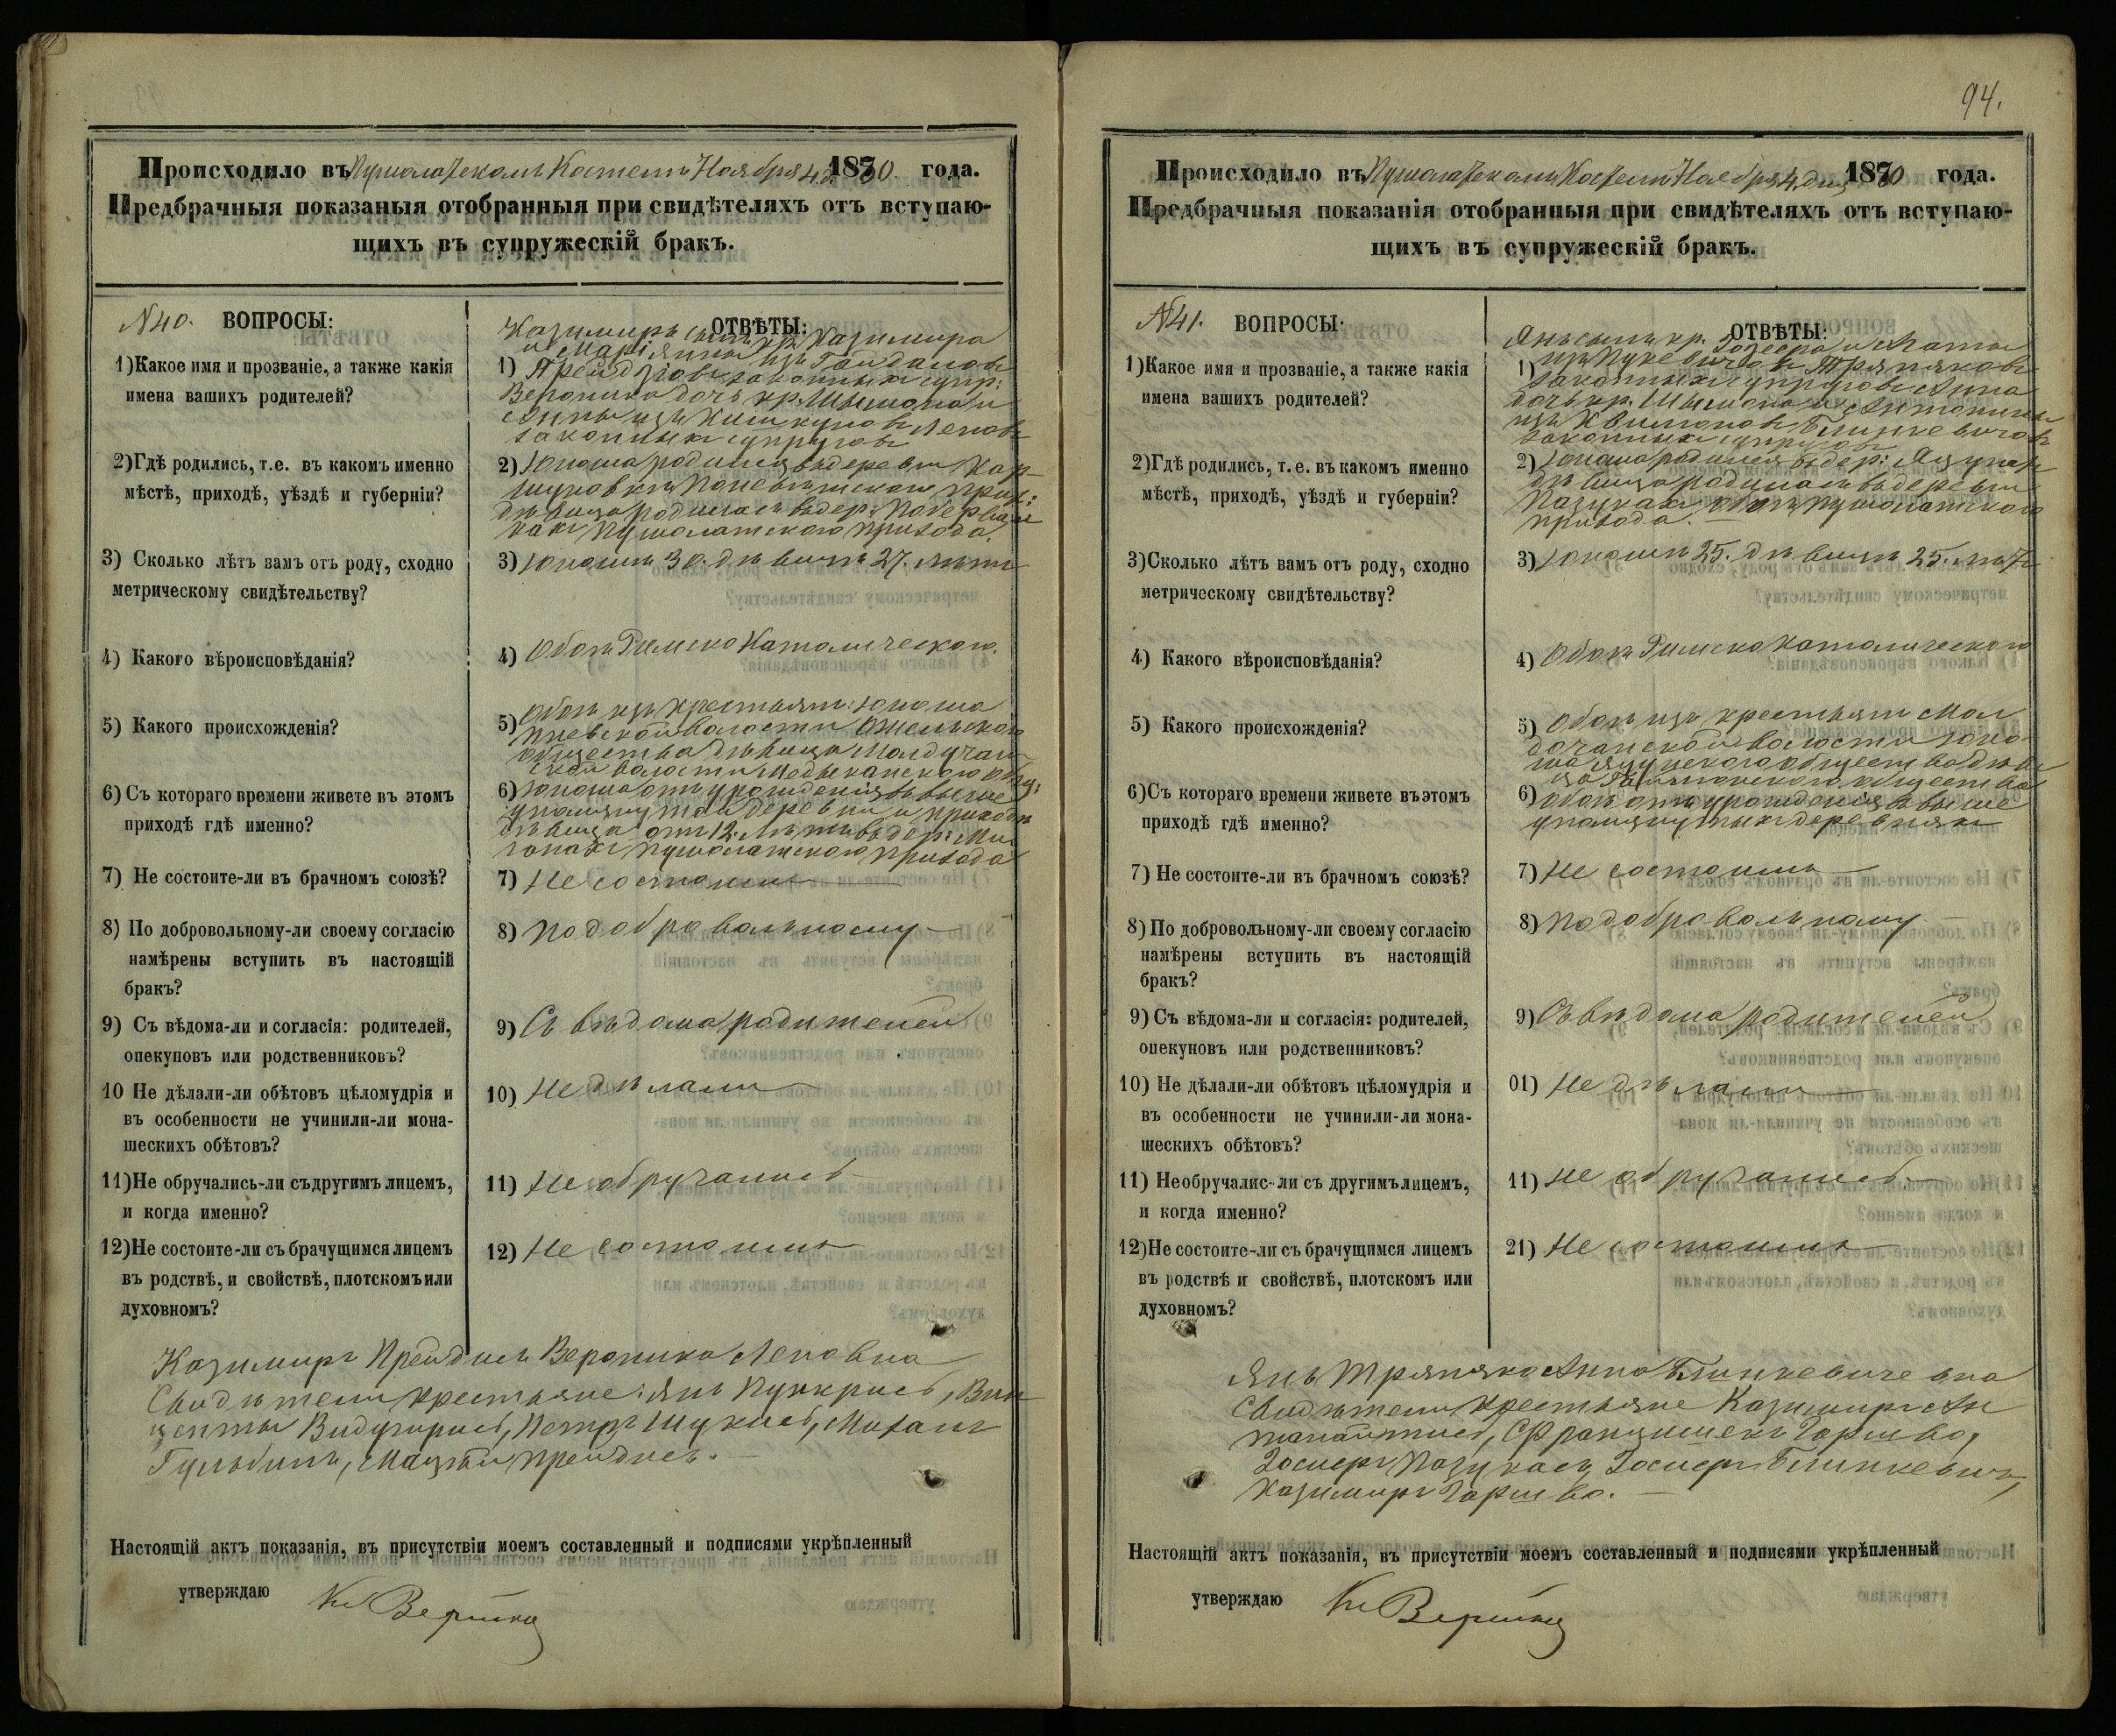 Происходило въ Пушолатскомъ Костелѣ Ноября 4 д. 1880. года.
Предбрачныя показаныя отобранныя при свидѣтеляхъ отъ вступаю-
щихъ въ супружескій бракъ.
N40. ВОПРОСЫ:
ОТВѢТЫ:
1)Какое имя и прозваніе, а также какія
имена вашихъ родителей?
Казимиръ сынъ кр. Казимира
и Маріянны изъ
1) Прейдзовъ законныхъ супр:
Вероника дочь кр. Шымона и
Анны изъ Леповъ
законныхъ супруговъ
2)Гдѣ родились, т.е. въ какомъ именно
мѣстѣ, приходѣ, уѣздѣ и губерніи?
2) Юноша родился въ деревни Кар-
прих:
дѣвица родилась въ дер:
Пушолатского прихода.
3) Сколько лѣтъ вамъ отъ роду, сходно
метрическому свидѣтельству?
3) Юношѣ 30. дѣвицѣ 27. лѣтъ
4) Какого вѣроисповѣданія?
4) Обоѣ Римско Католического.
5) Какого происхожденія?
5) Обоѣ изъ крестьянъ: Юноша
волости
общества дѣвица
ской волости общ:
6) Съ котораго времени живете въ этомъ
приходѣ гдѣ именно?
6) Юноша отъ урожденія въ выше
упомянутой деревни и приходѣ
дѣвица отъ 12. лѣтъ въ дер:
Пушолатского прихода
7) Не состоите-ли въ брачномъ союзѣ?
7) Не состоимъ
8) По добровольному-ли своему согласію
намѣрены вступить въ настоящій
бракъ?
8) По добровольному
9) Съ вѣдома-ли и согласія: родителей,
опекуповъ или родственниковъ?
9) Съ вѣдома родителей
10 Не дѣлали-ли обѣтовъ цѣломудрія и
въ особенности не учинили-ли мона-
шескихъ обѣтовъ?
10) Не дѣлали
11)Не обручались-ли съ другимъ лицемъ,
и когда именно?
11) Не обручались
12)Не состоите-ли съ брачущимся лицемъ
въ родствѣ, и свойствѣ, плотскомъ или
духовномъ?
12) Не состоимъ
Казимиръ Прейдисъ Вероника Леповна
Свидѣтели крестьяне: Янъ Пункрисъ, Вин-
центы Видугирисъ, Петръ Шукисъ, Михалъ
Гульбинъ, Мацѣй Прейдисъ.
Настоящій актъ показанія, въ присутствіи моемъ составленный и подписями укрѣпленный
утверждаю
94.
Происходило въ Пушолатскомъ Костелѣ Ноября 4. дня 1880 года.
Предбрачныя показанія отобранныя при свидѣтеляхъ отъ вступаю-
щихъ въ супружескій бракъ.
N41. ВОПРОСЫ:
ОТВѢТЫ:
1)Какое имя и прозваніе, а также какія
имена вашихъ родителей?
Янъ сынъ кр. Іозефа и Агаты
1) изъ Пукевичовъ Тряпяковъ
законныхъ супруговъ Анна
дочь кр. Шымона и Антонины
изъ Блинкевичовъ
законныхъ супруговъ
2)Гдѣ родились, т. е. въ какомъ именно
мѣстѣ, приходѣ, уѣздѣ и губерніи?
2) Юноша родился въ дер:
дѣвица родилась въ деревни
Пазукахъ обоѣ Пушолатского
прихода.
3)Сколько лѣтъ вамъ отъ роду, сходно
метрическому свидѣтельству?
3) Юношѣ 25. дѣвицѣ 25. лѣтъ
4) Какого вѣроисповѣданія?
4) Обоѣ Римско Католического
5) Какого происхожденія?
5) Обоѣ изъ крестьянъ
волости юно-
ша общества дѣви
ца общества
6)Съ котораго времени живете въ этомъ
приходѣ гдѣ именно?
6) Обоѣ отъ урожденія въ выше
упомянутыхъ деревняхъ
7) Не состоите-ли въ брачномъ союзѣ?
7) Не состоимъ
8) По добровольному-ли своему согласію
намѣрены вступить въ настоящій
бракъ?
8) По добровольному
9) Съ вѣдома-ли и согласія: родителей,
опекуновъ или родственниковъ?
9) Съ вѣдома родителей
10) Не дѣлали-ли обѣтовъ цѣломудрія и
въ особенности не учинили-ли мона-
шескихъ обѣтовъ?
01) Не дѣлали
11) Необручалис-ли съ другимъ лицемъ,
и когда именно?
11) Не обручались
12)Не состоите-ли съ брачущимся лицемъ
въ родствѣ и свойствѣ, плотскомъ или
духовномъ?
21) Не состоимъ
Янъ Тряпяко Анна Блинкевичевна
Свидѣтели крестьяне Казимиръ Ан
танайтисъ, Францишекъ
Іосиеръ Пазукасъ, Іосиеръ Блинкевичъ,
Казимиръ
Настоящій актъ показанія, въ присутствіи моемъ составленный и подписями укрѣпленный
утверждаю